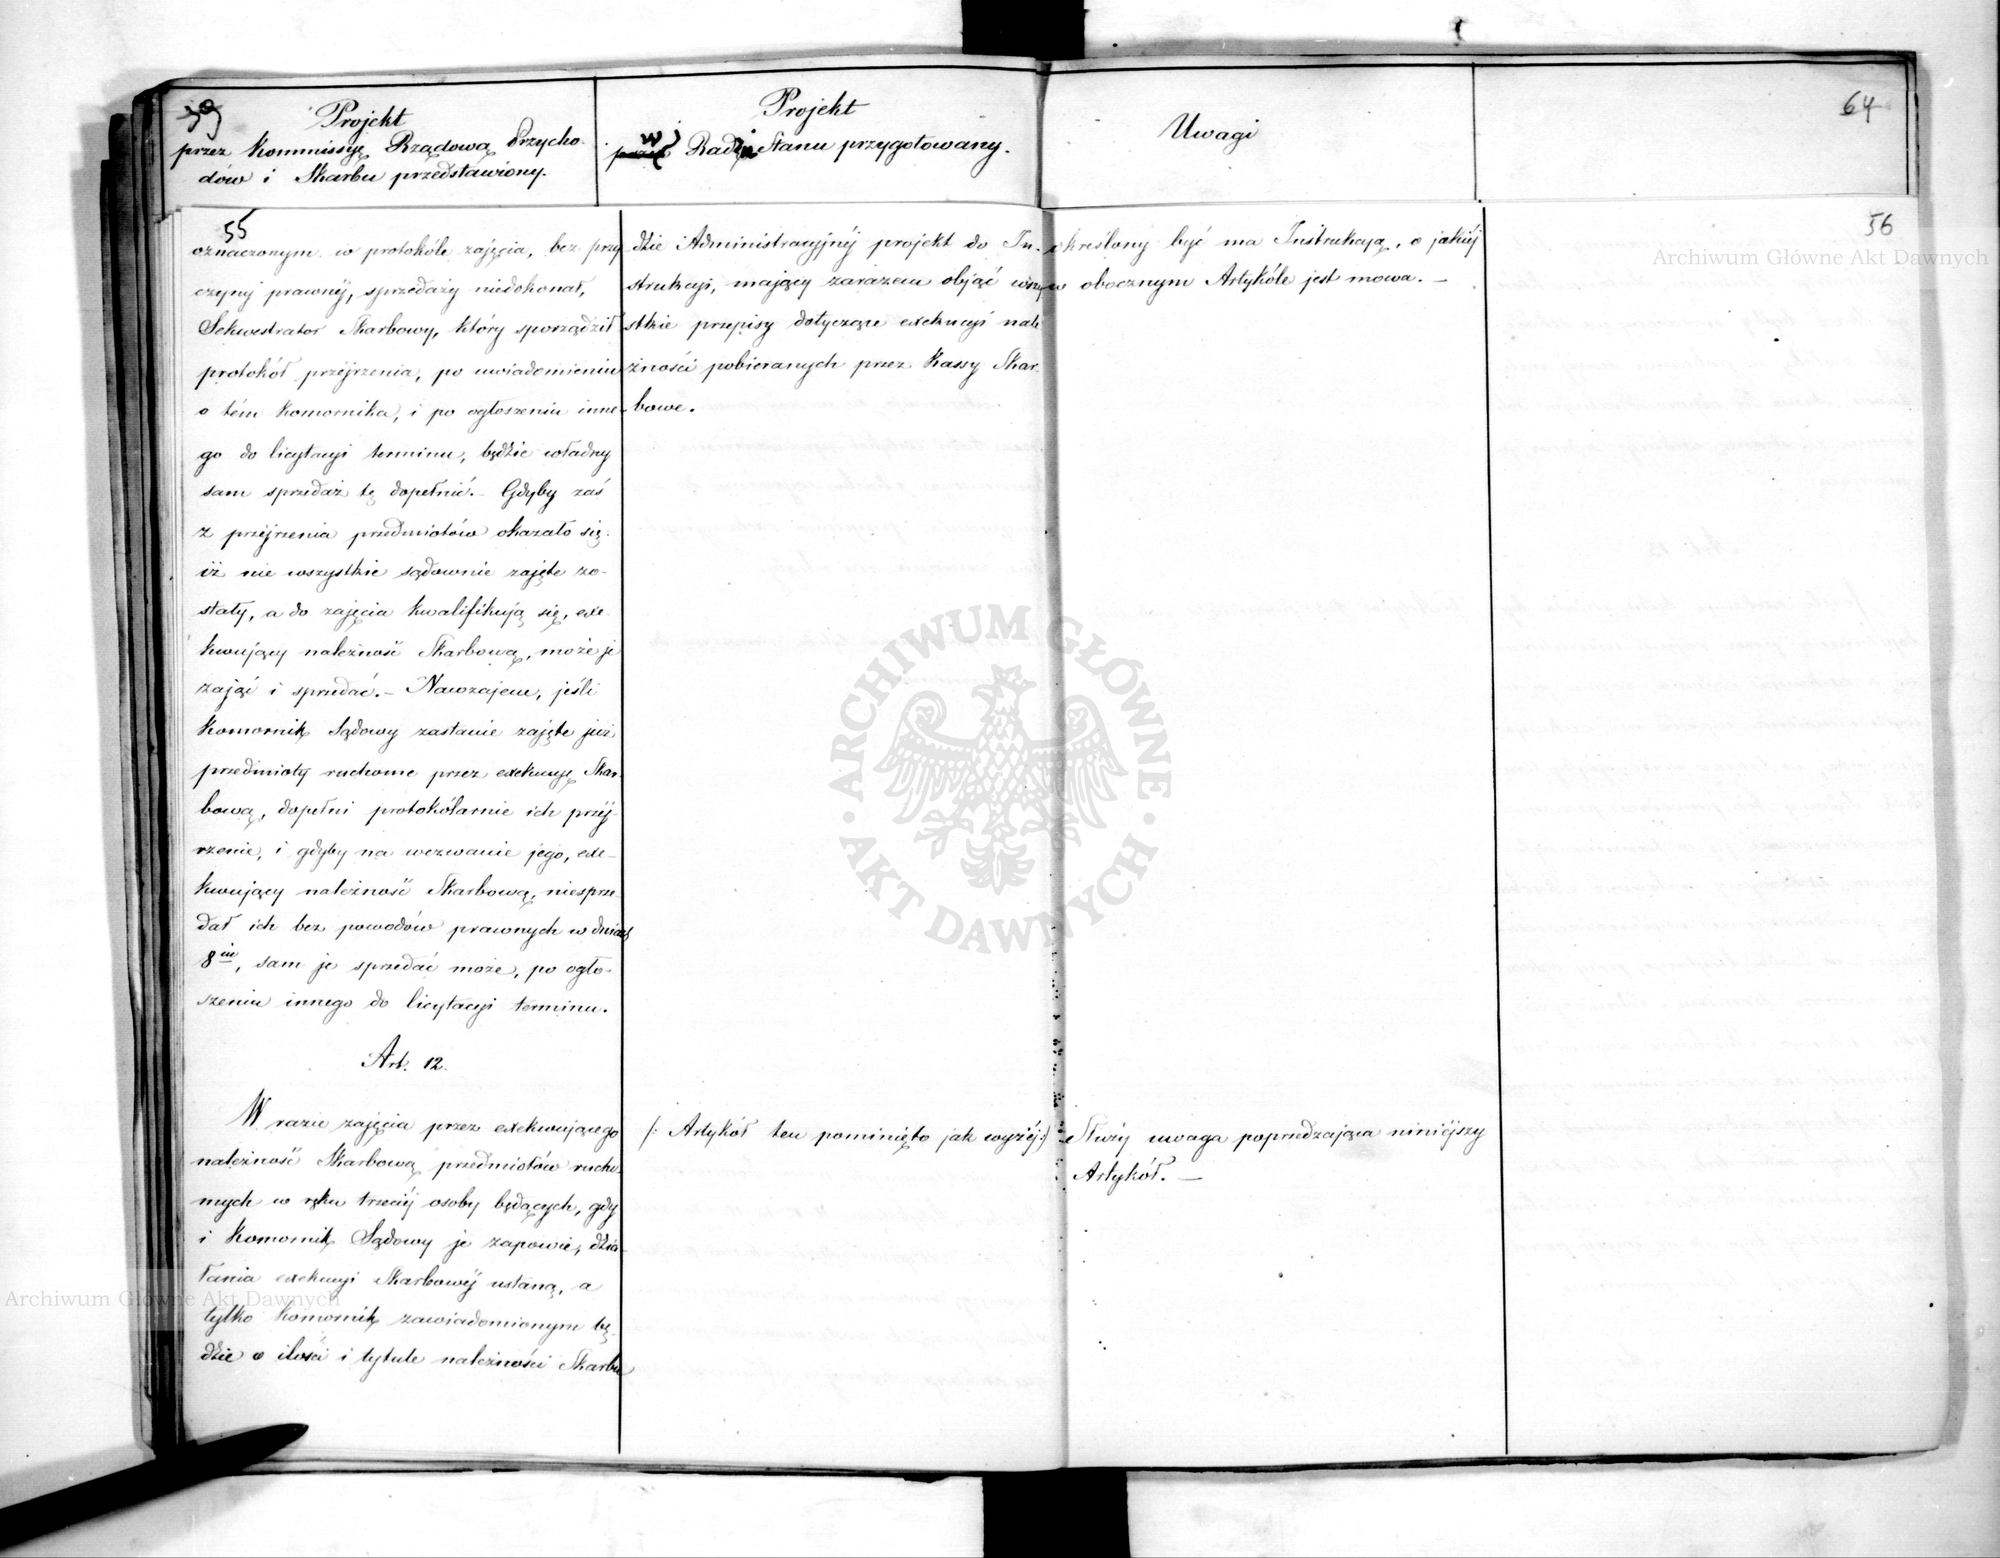 59
Projekt
przez Kommissyę Rządową Przycho-
dów i Skarbu przedstawiony.
Projekt
w Radzie Stanu przygotowany.
Uwagi
64
55
oznaczonym w protokóle zajęcia, bez przy
czyny prawnéj, sprzedaży niedokonał,
Sekwestrator Skarbowy, który sporządził
protokół przéjrzenia, po uwiadomieniu
o tém Komornika, i po ogłoszeniu inne-
go do licytacyi terminu, będzie władny
sam sprzedaż tę dopełnić. – Gdyby zaś
z przéjrzenia przedmiotów okazało się,
iż nie wszystkie sądownie zajęte zo-
stały, a do zajęcia kwalifikują się, exe-
kwujący należność Skarbową, może je
zająć i sprzedać. – Nawzajem, jeśli
Komornik Sądowy zastanie zajęte już
przedmioty ruchome przez exekucyę Skar-
bową, dopełni protokólarnie ich przéj-
rzenie, i gdyby na wezwanie jego, exe-
kwujący należność Skarbową, niesprze-
dał ich bez powodów prawnych w dniach
8iu, sam je sprzedać może, po ogło-
szeniu innego do licytacyi terminu.
Art. 12.
W razie zajęcia przez exekwującego
należność Skarbową przedmiotów rucho-
mych w ręku trzeciéj osoby będących, gdy
i Komornik Sądowy je zapowie, dzia-
łania exekucyi Skarbowéj ustaną, a
tylko Komornik zawiadomionym bę-
dzie o ilości i tytule należności Skarbu
dzie Administracyjnéj projekt do In-
strukcyi, mający zarazem objąć wszy
stkie przepisy dotyczące exekucyi nale
żności pobieranych przez Kassy Skar-
bowe.
/: Artykół ten pominięto jak wyżéj :/
56
określony być ma Instrukcyą, o jakiéj
w obocznym Artykóle jest mowa. –
Służy uwaga poprzedzająca niniéjszy
Artykół. –
Archiwum Główne Akt Dawnych
ARCHIWUM GŁÓWNE
AKT DAWNYCH
Archiwum Główne Akt Dawnych